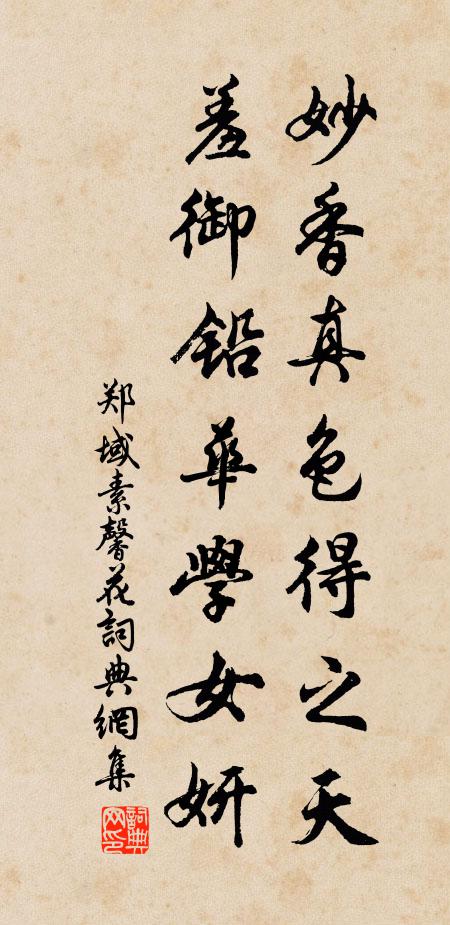 妙香真色得之天
羞御鉛華學女妍
郑域素馨花詞典網集
詞典网印